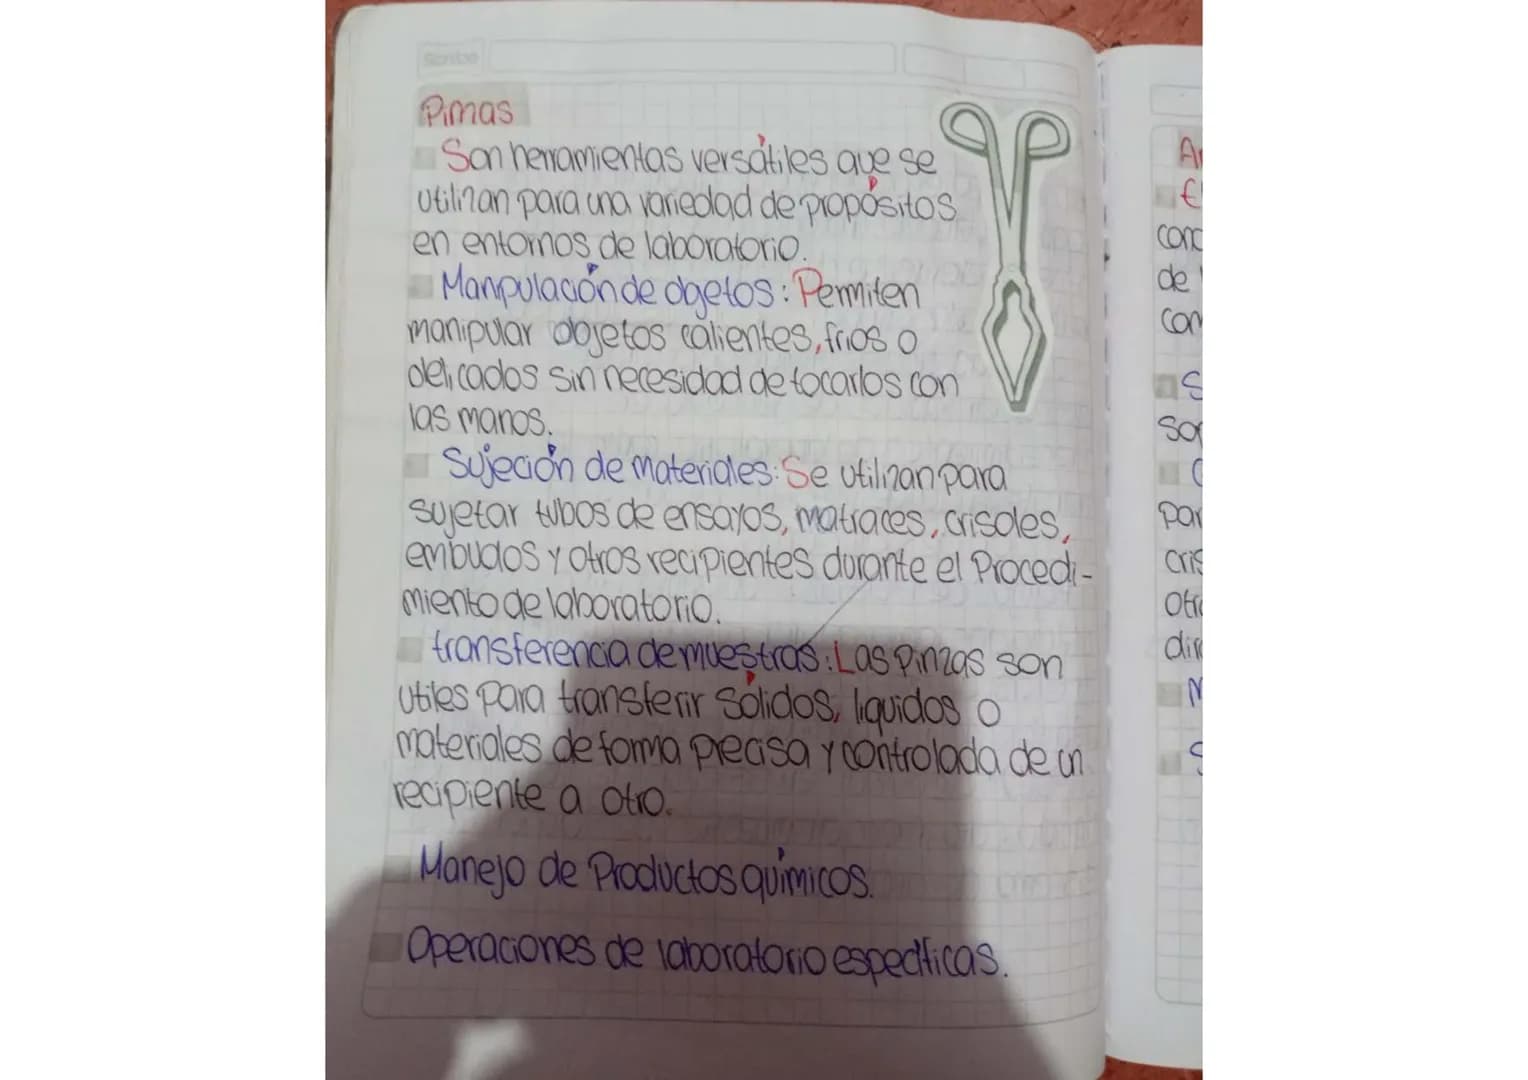 Scribe
Pinzas
Son herramientas versátiles que se
utilizan para una variedad de propósitos
en entornos de laboratorio.
Manipulación de objetos: Permiten
manipular objetos calientes, frios o
delicados sin necesidad de tocarlos con
las manos.
Sujeción de materiales: Se utilizan para
sujetar tubos de ensayos, matraces, crisoles,
embudos y otros recipientes durante el Procedi-
miento de laboratorio.
transferencia de muestras: Las Pinzas son
utiles para transferir sólidos, liquidos o
materiales de forma precisa y controlada de un
recipiente a otro.
Manejo de Productos químicos.
Operaciones de laboratorio específicas.
de